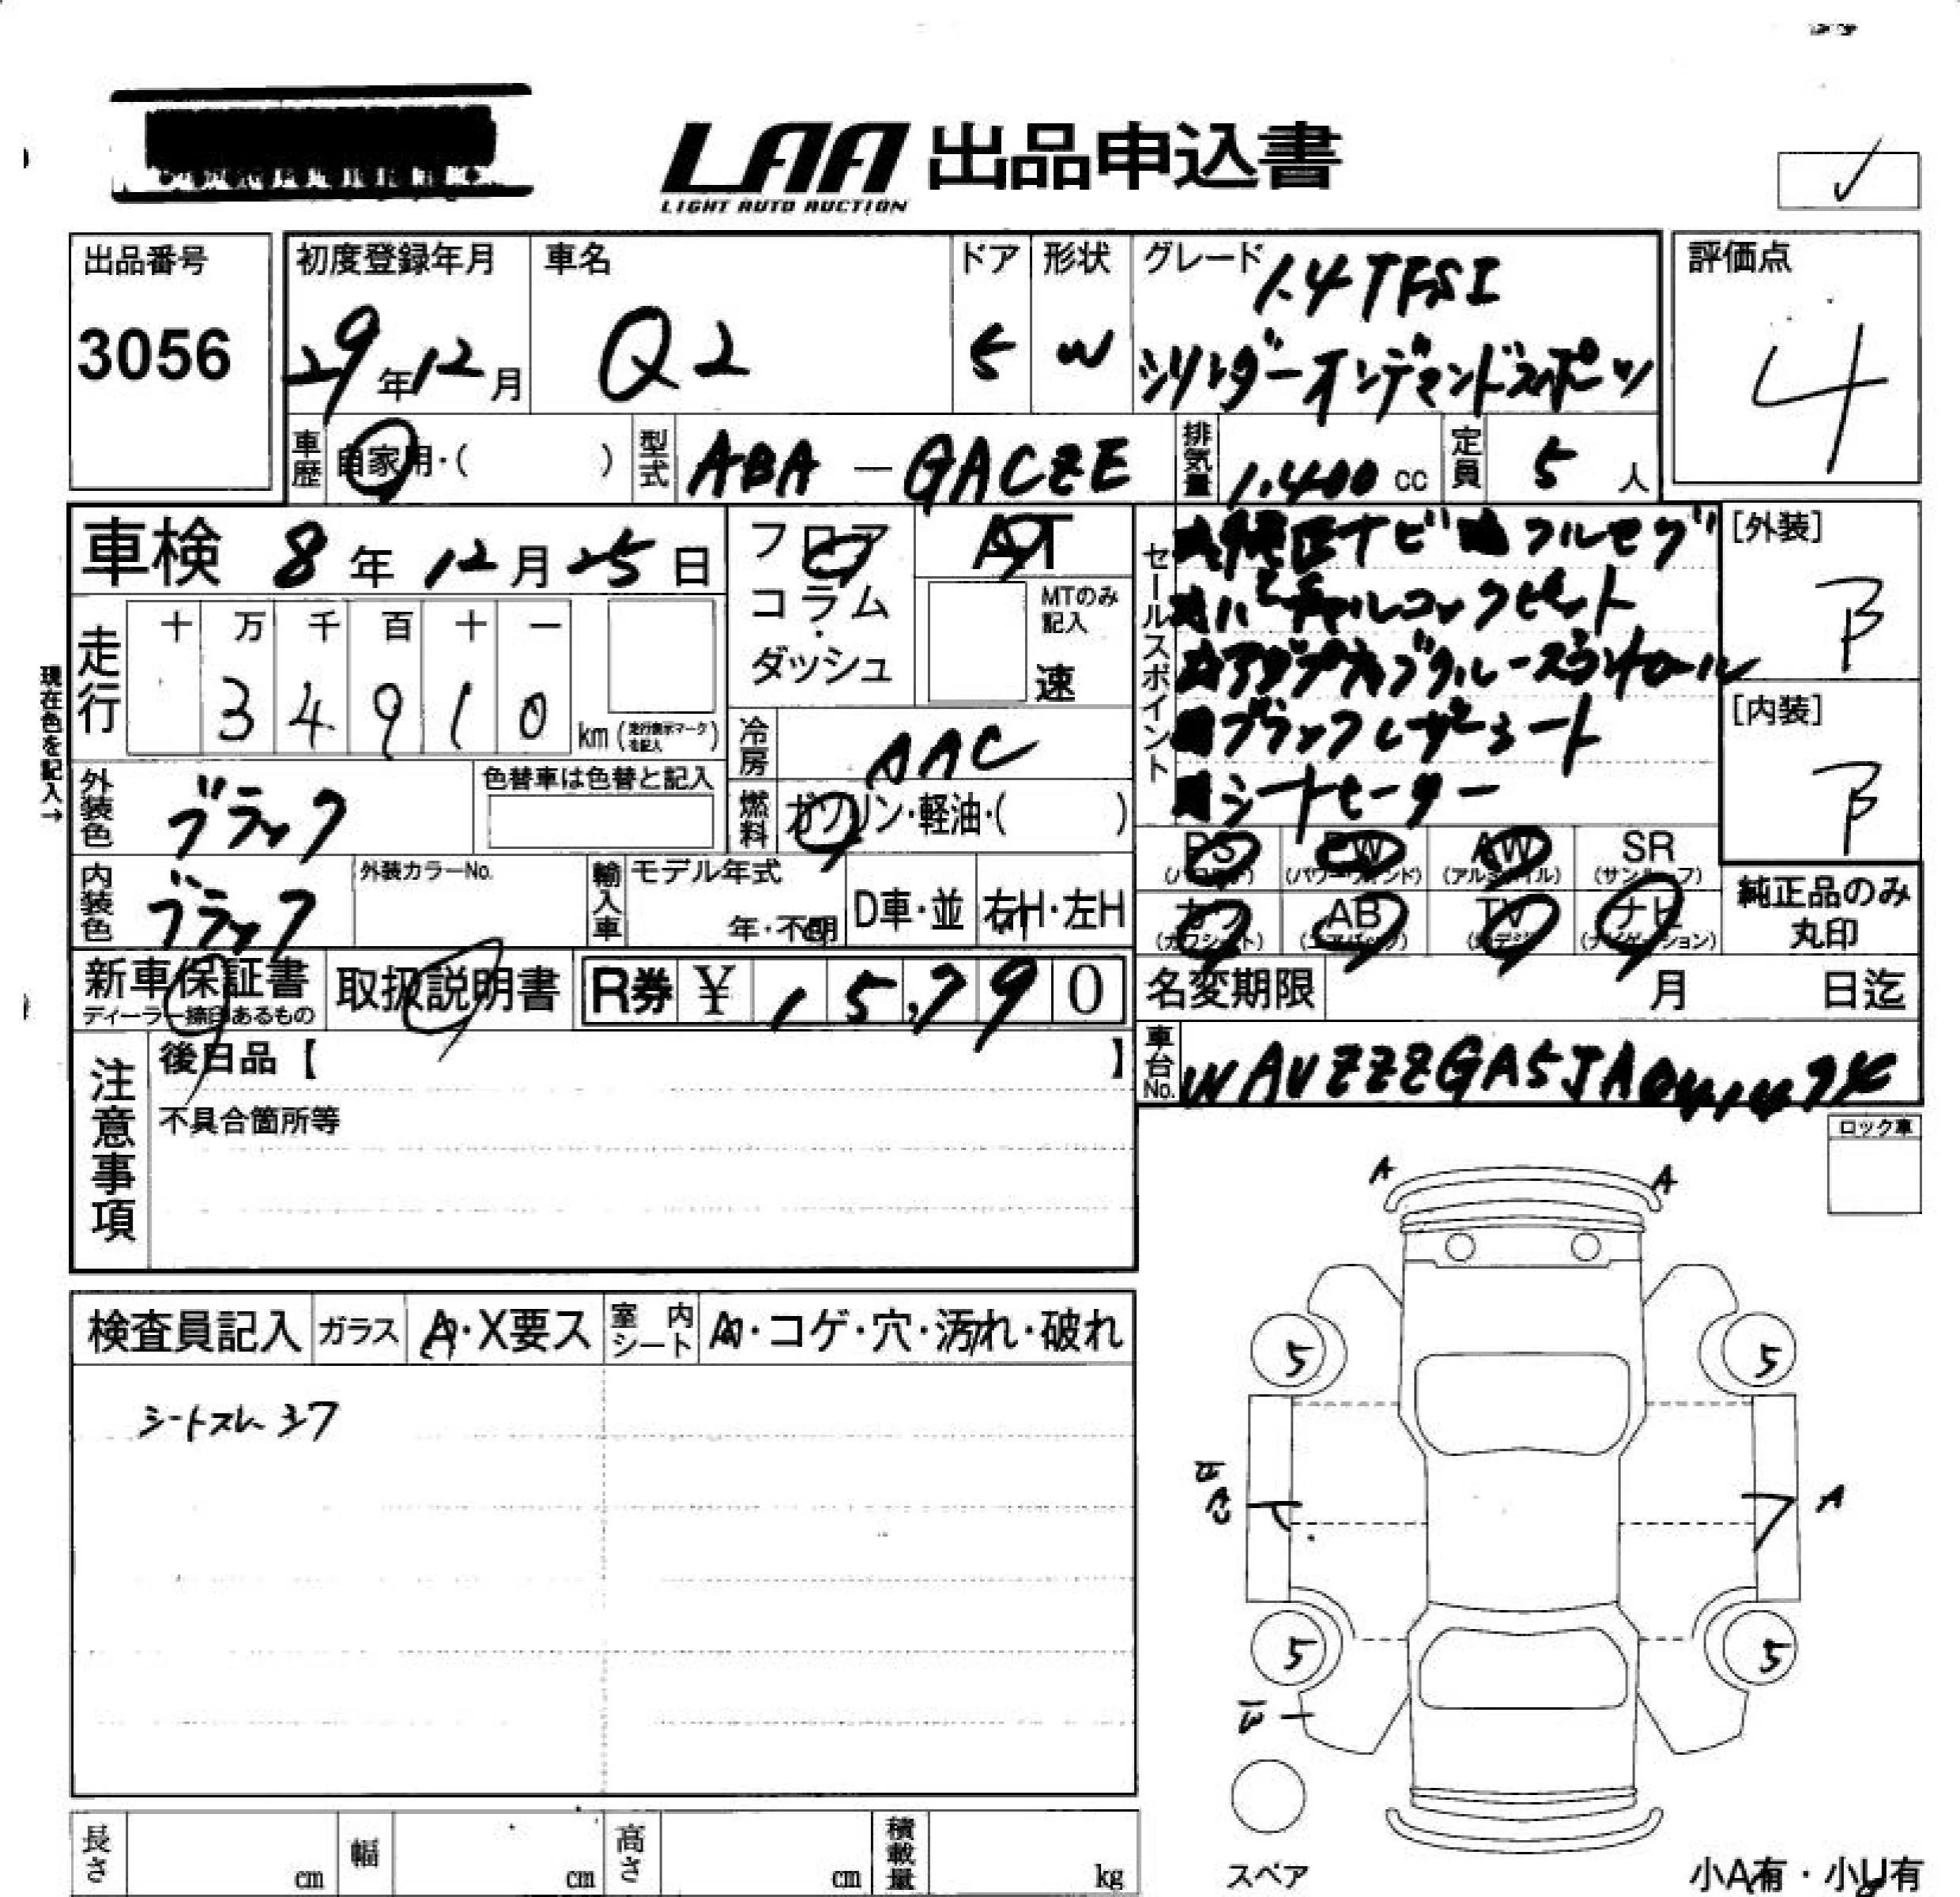 LAA 出品申込書
LIGHT AUTO AUCTION
出品番号
3056
初度登録年月
29年12月
車名
Q2
ドア
5
形状
W
グレード
1.4TFSI
シリンダーオンデマンドスポーツ
評価点
4
車歴
自家用・( )
型式
ABA-GACZE
排気量
1.400 cc
定員
5 人
車検 8年12月25日
フロア
コラム
・
ダッシュ
AT
MTのみ記入
速
セールスポイント
ナビ フルセグ
バーチャルコックピット
アダプティブクルーズコントロール
ブラックレザーシート
シートヒーター
[外装]
B
[内装]
B
現在色を記入→
走行
十 万 千 百 十 一
3 4 9 1 0 km (走行表示マークを記入)
冷房
AAC
外装色
ブラック
色替車は色替と記入
燃料
ガソリン・軽油・( )
内装色
ブラック
外装カラーNo.
輸入車
モデル年式
年・不明
D車・並
右H・左H
PS
(パワステ)
PW
(パワーウィンド)
AW
(アルミホイル)
SR
(サンルーフ)
カワ
(カワシート)
AB
(エアバック)
TV
(地デジ)
ナビ
(ナビゲーション)
純正品のみ
丸印
新車保証書
ディーラー捺印あるもの
取扱説明書
R券 ¥ 15,790
名変期限 月 日迄
車台No.
WAUZZZGA5JA
注意事項
後日品【 】
不具合箇所等
ロック車
A A
検査員記入
ガラス
A・X要ス
室内シート
・コゲ・穴・汚れ・破れ
シートスレ シワ
5 5
A
5 5
スペア
長さ cm
幅 cm
高さ cm
積載量 kg
小A有・小U有